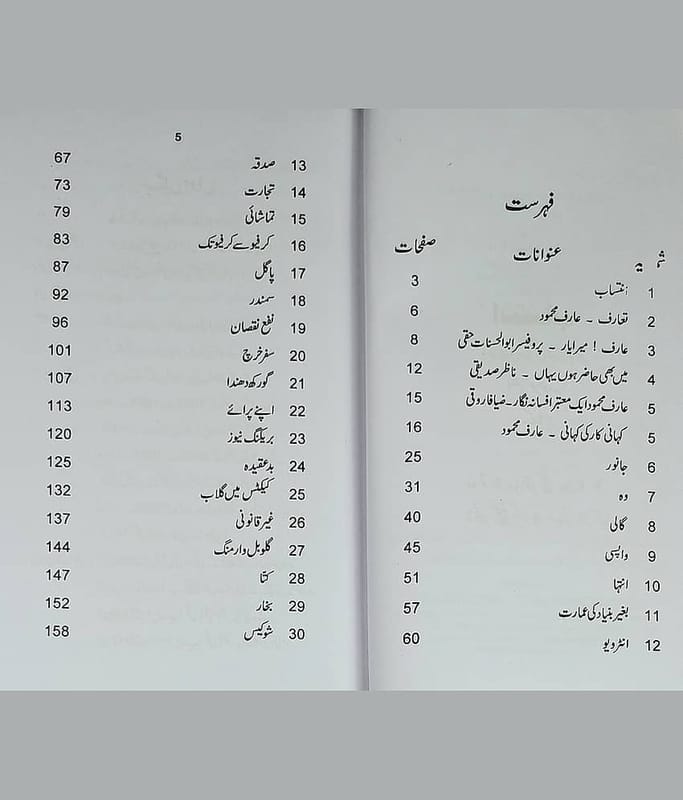 فہرست
عنوانات صفحات
1 انتساب 3
2 تعارف ۔ عارف محمود 6
3 عارف ! میرا یار ۔ پروفیسر ابوالحسنات حقی 8
4 میں بھی حاضر ہوں یہاں ۔ ناظر صدیقی 12
5 عارف محمود ایک معتبر افسانہ نگار۔ ضیا فاروقی 15
5 کہانی کار کی کہانی ۔ عارف محمود 16
6 جانور 25
7 وہ 31
8 گالی 40
9 واپسی 45
10 انتہا 51
11 بغیر بنیاد کی عمارت 57
12 انٹرویو 60
5
13 صدقہ 67
14 تجارت 73
15 تماشائی 79
16 کرفیو سے کرفیو تک 83
17 پاگل 87
18 سمندر 92
19 نفع نقصان 96
20 سفر خرچ 101
21 گورکھ دھندا 107
22 اپنے پرائے 113
23 بریکنگ نیوز 120
24 بد عقیدہ 125
25 کیکٹس میں گلاب 132
26 غیر قانونی 137
27 گلوبل وارمنگ 144
28 کتا 147
29 بخار 152
30 شوکیس 158